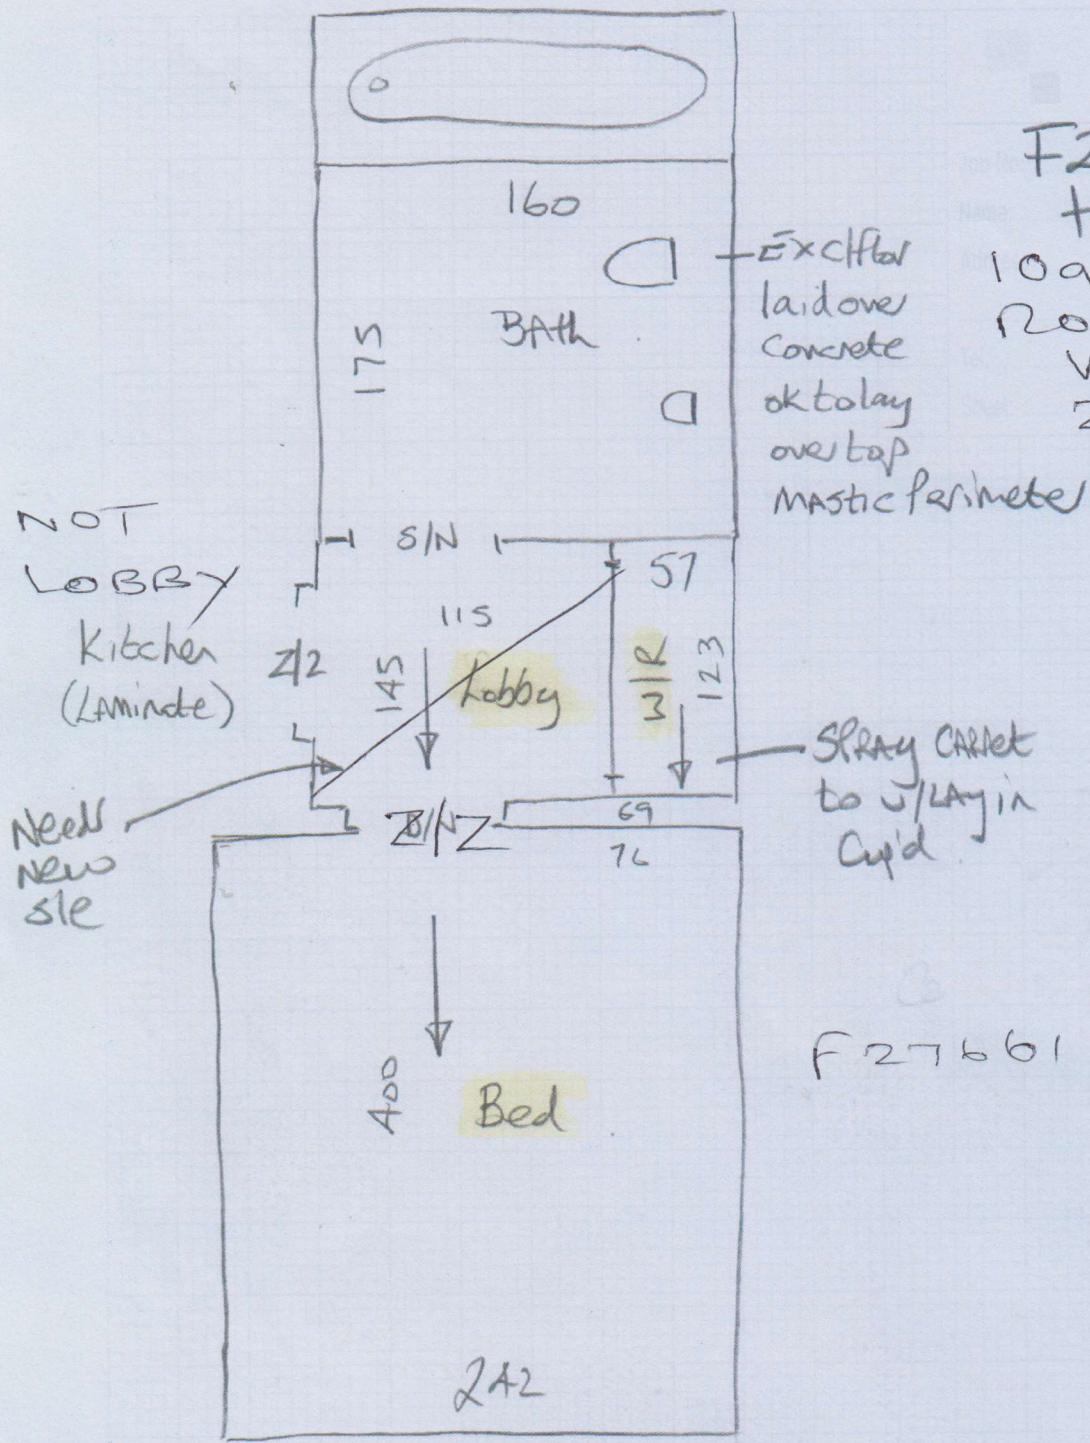 F2
160
EXC/flor
laid over
Concrete
ok to lay
over top
MASTIC Perimeter
10a
BAth
175
NOT
LOBBY
Kitchen
(LAMinate)
S/N
57
115
Z/2
145
Lobby
3/R
123
SPRAY CARPet
to U/LAy in
Cup'd
Needs
New
S/e
Z
69
76
400
Bed
F27661
242